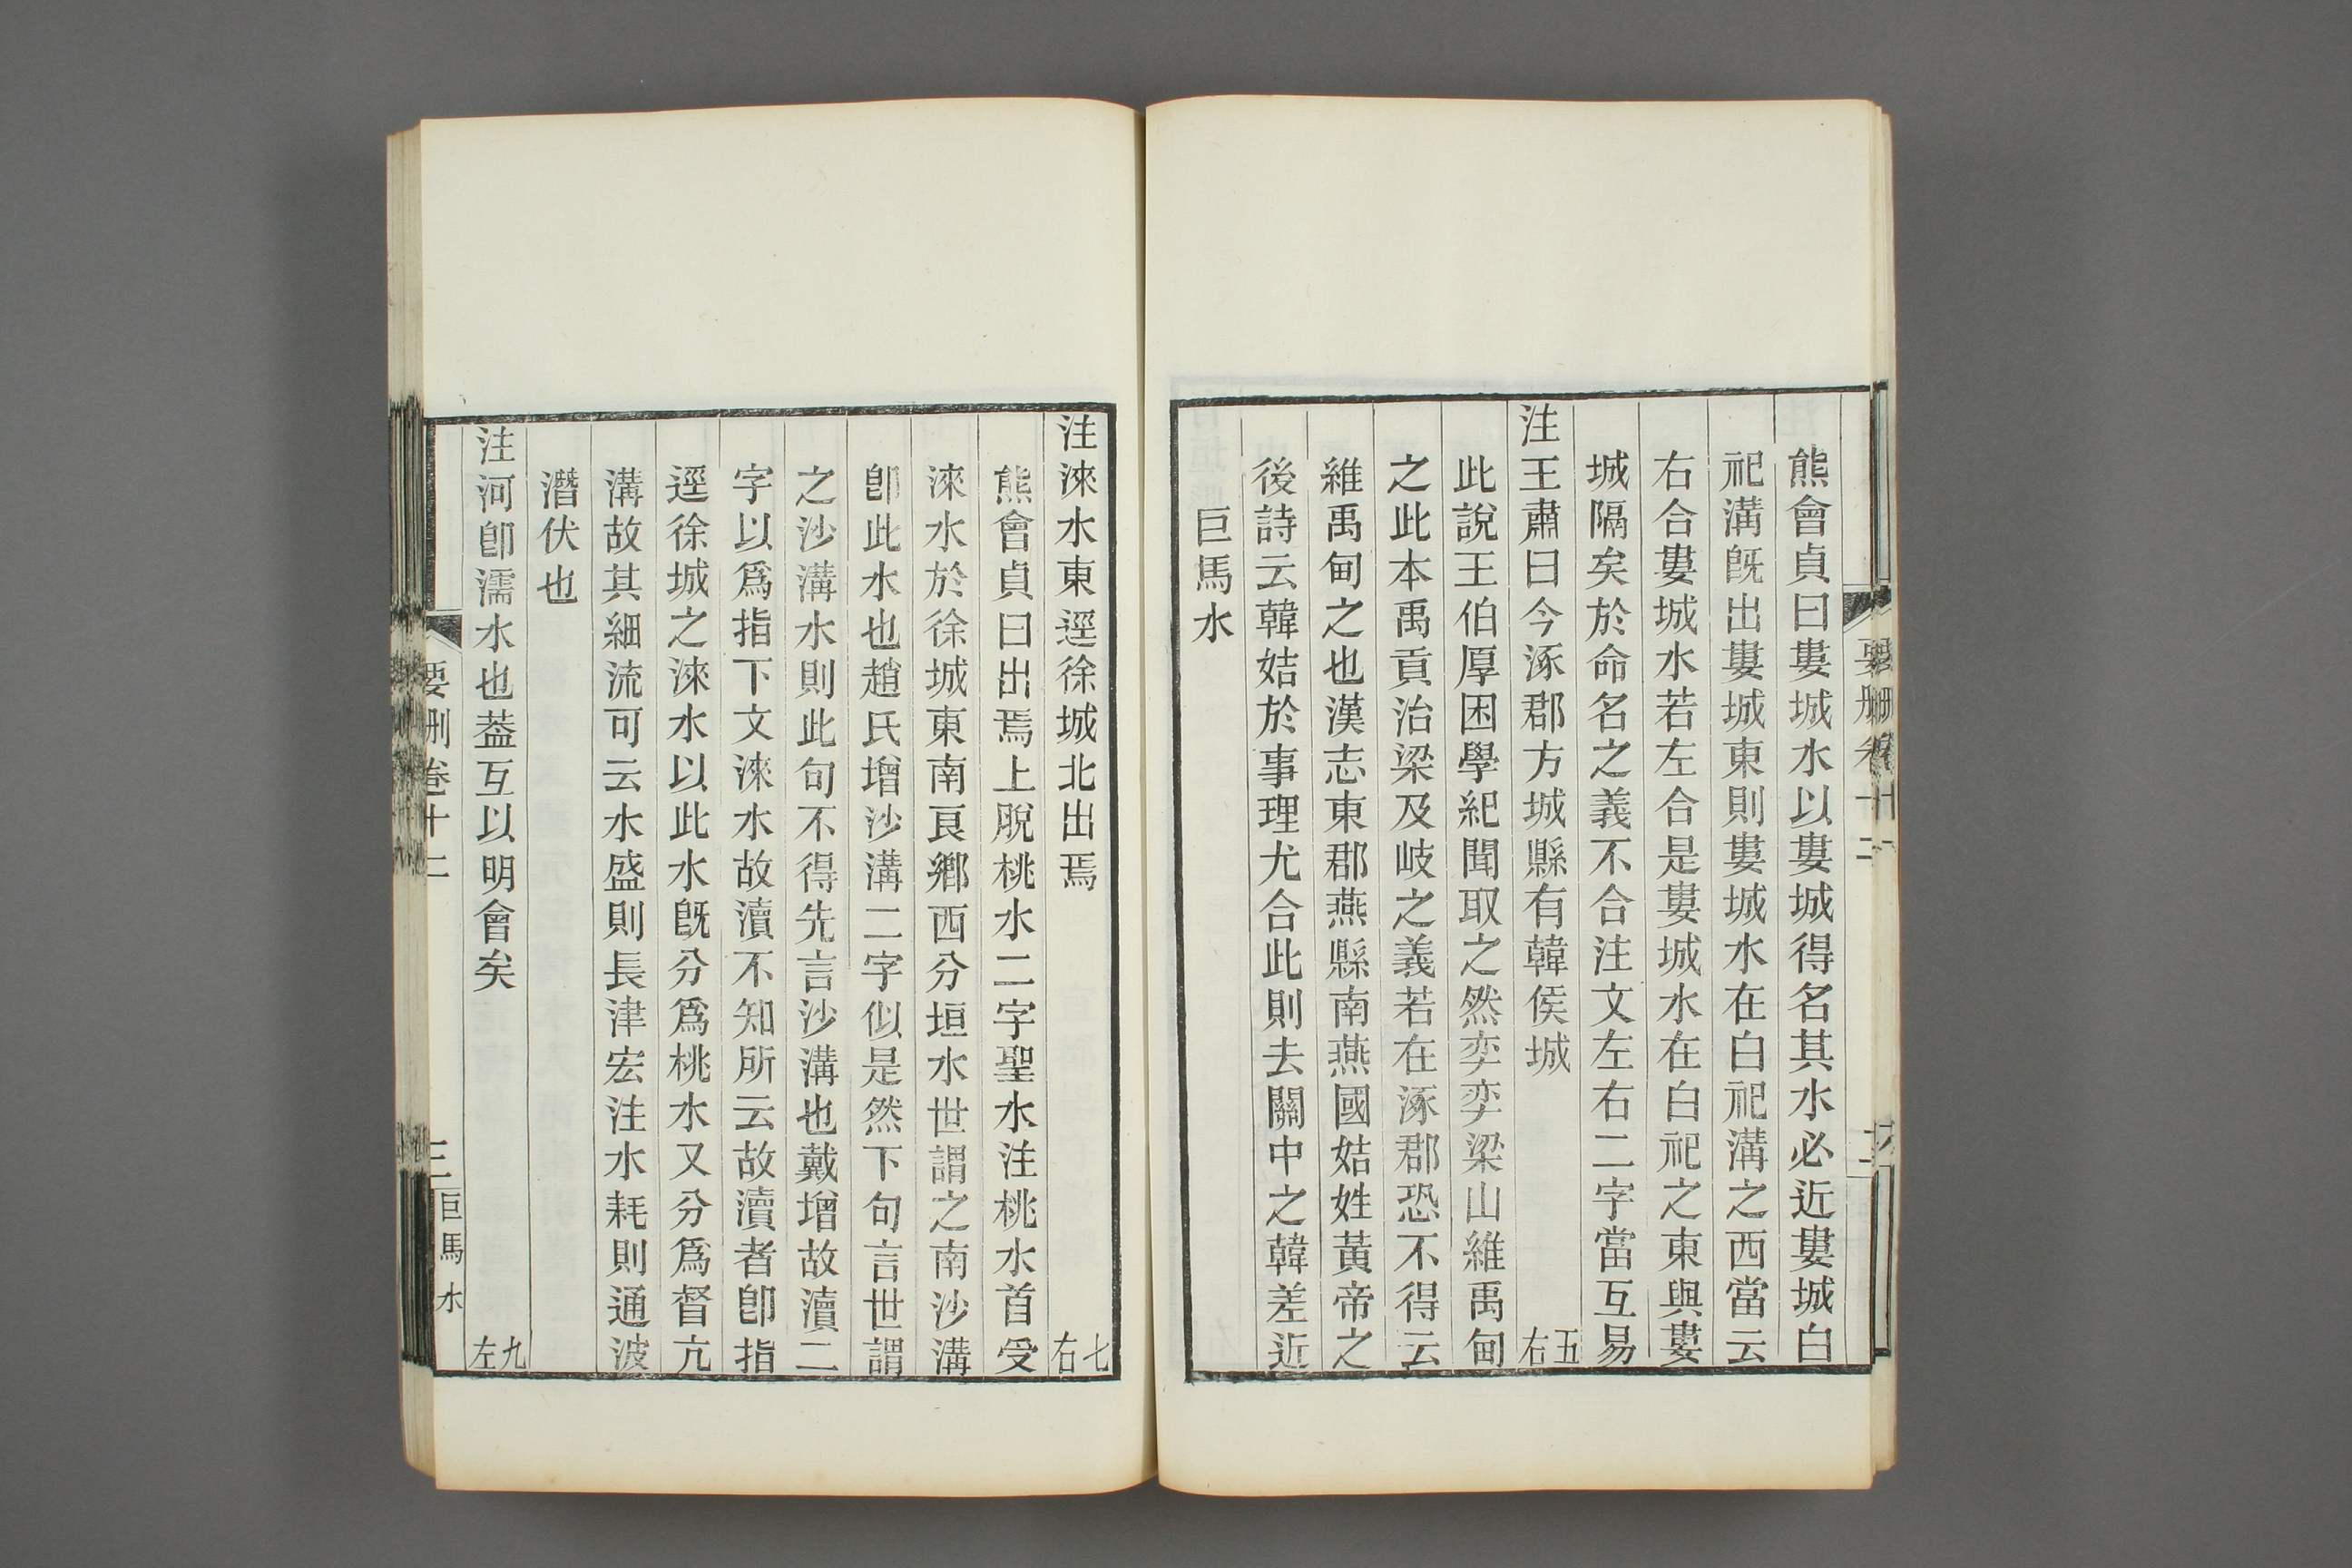 熊會貞曰婁城水以婁城得名其水必近婁城白
祀溝旣出婁城東則婁城水在白祀溝之西當云
右合婁城水若左合是婁城水在白祀之東與婁
城隔矣於命名之義不合注文左右二字當互易
注王肅曰今涿郡方城縣有韓侯城 五右
此說王伯厚困學紀聞取之然奕奕梁山維禹甸
之此本禹貢治梁及岐之義若在涿郡恐不得云
維禹甸之也漢志東郡燕縣南燕國姞姓黃帝之
後詩云韓姞於事理尤合此則去關中之韓差近
巨馬水
注淶水東逕徐城北出焉 七右
熊會貞曰出焉上脫桃水二字聖水注桃水首受
淶水於徐城東南良鄉西分垣水世謂之南沙溝
卽此水也趙氏增沙溝二字似是然下句言世謂
之沙溝水則此句不得先言沙溝也戴增故瀆二
字以爲指下文淶水故瀆不知所云故瀆者卽指
逕徐城之淶水以此水旣分爲桃水又分爲督亢
溝故其細流可云水盛則長津宏注水耗則通波
潛伏也
注河卽濡水也葢互以明會矣 九左
要刪卷十二 三 巨馬水